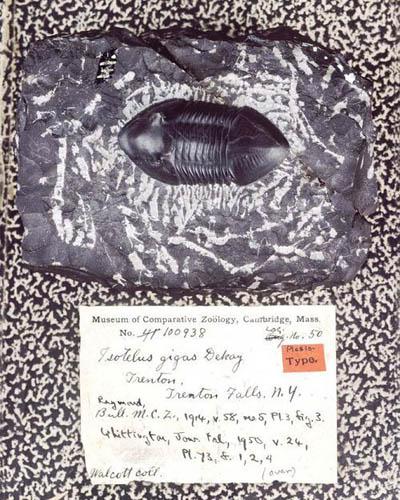 Museum of Comparative Zoölogy, Cambridge, Mass.
No. 100938 No. 50
Isotelus gigas Dekay
Plesio-
Type.
Trenton,
Trenton Falls, N.Y.
Raymond,
Bull. M.C.Z., 1914, v. 58, no 5, Pl. 3, fig. 3.
Whittington, Jour. Pal., 1950, v. 24,
Pl. 73, f. 1, 2, 4
Walcott coll. (over)